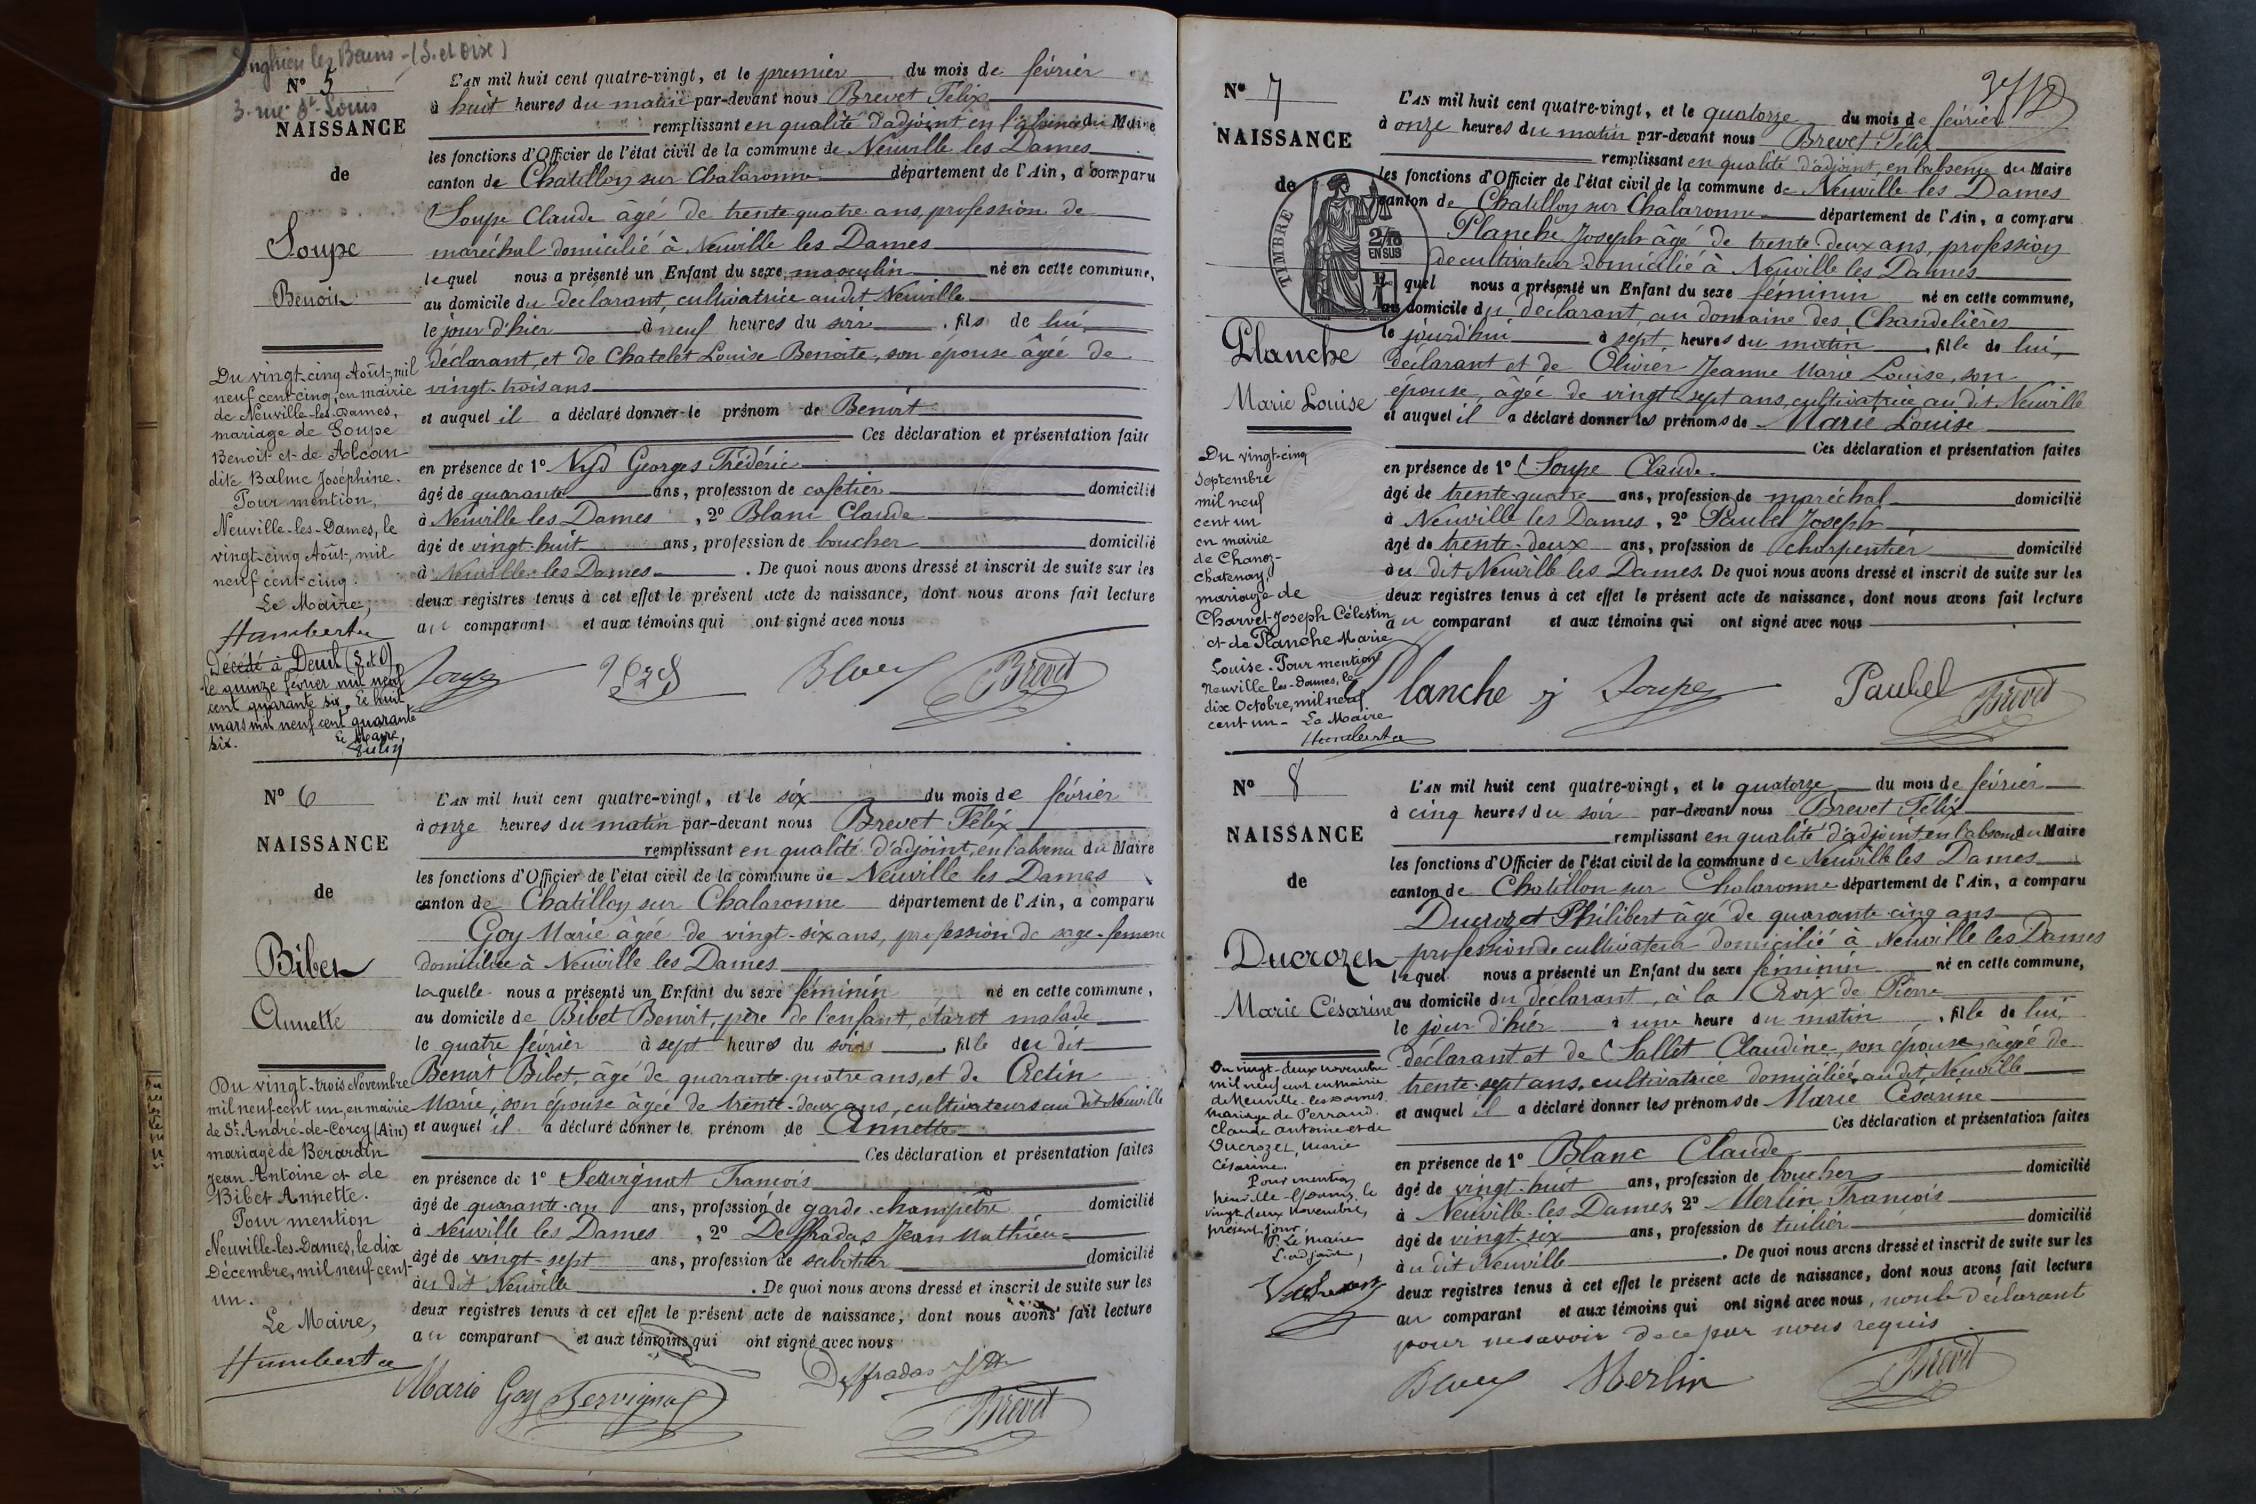 Enghien les Bains - (S. et Oise)
N° 5
3. rue St Louis
NAISSANCE
de
Soupe
Benoit
Du vingt-cinq Août, mil
neuf cent cinq, en mairie
de Neuville-les-Dames,
mariage de Soupe
Benoit et de Alcan
dite Balme Joséphine.
Pour mention,
Neuville-les-Dames, le
vingt-cinq Août, mil
neuf cent cinq.
Le Maire,
Humbert
Décédé à Deuil (S. et O)
le quinze février mil neuf
cent quarante six. Le huit
mars mil neuf cent quarante
six. Le Maire,
L'AN mil huit cent quatre-vingt, et le premier du mois de février
à huit heures du matin par-devant nous Brevet Félix
remplissant en qualité d'adjoint en l'absence du Maire
les fonctions d'Officier de l'état civil de la commune de Neuville les Dames
canton de Chatillon sur Chalaronne département de l'Ain, a comparu
Soupe Claude âgé de trente quatre ans, profession de
maréchal domicilié à Neuville les Dames
lequel nous a présenté un Enfant du sexe masculin né en cette commune,
au domicile du déclarant, cultivatrice audit Neuville
le jour d'hier à neuf heures du soir, fils de lui,
déclarant, et de Chatelet Louise Benoite, son épouse âgée de
vingt-trois ans
et auquel il a déclaré donner le prénom de Benoit
Ces déclaration et présentation faites
en présence de 1° Nyd Georges Frédéric
âgé de quarante ans, profession de cafetier domicilié
à Neuville les Dames, 2° Blanc Claude
âgé de vingt-huit ans, profession de boucher domicilié
à Neuville les Dames. De quoi nous avons dressé et inscrit de suite sur les
deux registres tenus à cet effet le présent acte de naissance, dont nous avons fait lecture
au comparant et aux témoins qui ont signé avec nous
Soupe Blanc Brevet
N° 6
NAISSANCE
de
Bibet
Annette
Du vingt-trois Novembre
mil neuf cent un, en mairie
de St André-de-Corcy (Ain)
mariage de Bérardan
Jean Antoine et de
Bibet Annette.
Pour mention
Neuville-les-Dames, le dix
Décembre, mil neuf cent
un.
Le Maire,
Humbert
L'AN mil huit cent quatre-vingt, et le six du mois de février
à onze heures du matin par-devant nous Brevet Félix
remplissant en qualité d'adjoint, en l'absence du Maire
les fonctions d'Officier de l'état civil de la commune de Neuville les Dames
canton de Chatillon sur Chalaronne département de l'Ain, a comparu
Goy Marie âgée de vingt-six ans, profession de sage-femme
domiciliée à Neuville les Dames
laquelle nous a présenté un Enfant du sexe féminin né en cette commune,
au domicile de Bibet Benoit, père de l'enfant, étant malade
le quatre février à sept heures du soir, fille du dit
Benoit Bibet, âgé de quarante-quatre ans, et de Cretin
Marie, son épouse âgée de trente-deux ans, cultivateurs au dit Neuville
et auquel il a déclaré donner le prénom de Annette
Ces déclaration et présentation faites
en présence de 1° Servignat François
âgé de quarante-un ans, profession de garde-champêtre domicilié
à Neuville les Dames, 2° Deffradas Jean Mathieu
âgé de vingt-sept ans, profession de sabotier domicilié
au dit Neuville. De quoi nous avons dressé et inscrit de suite sur les
deux registres tenus à cet effet le présent acte de naissance, dont nous avons fait lecture
au comparant et aux témoins qui ont signé avec nous
Marie Goy Servignat Deffradas Brevet
N° 7
NAISSANCE
de
TIMBRE
2/10
EN SUS
Planche
Marie Louise
Du vingt-cinq
Septembre
mil neuf
cent un
en mairie
de Chanoz-
Chatenay,
mariage de
Charvet Joseph Célestin
et de Planche Marie
Louise. Pour mention
Neuville les-Dames, le
dix Octobre, mil neuf
cent un - Le Maire
Humbert
L'AN mil huit cent quatre-vingt, et le quatorze du mois de février
à onze heures du matin par-devant nous Brevet Félix
remplissant en qualité d'adjoint, en l'absence du Maire
les fonctions d'Officier de l'état civil de la commune de Neuville les Dames
canton de Chatillon sur Chalaronne département de l'Ain, a comparu
Planche Joseph âgé de trente deux ans, profession
de cultivateur domicilié à Neuville les Dames
quel nous a présenté un Enfant du sexe féminin né en cette commune,
au domicile du déclarant, au domaine des Chandelières
le jourd'hui à sept heures du matin, fille de lui,
déclarant et de Olivier Jeanne Marie Louise, son
épouse, âgée de vingt sept ans, cultivatrice au dit Neuville
et auquel il a déclaré donner les prénoms de Marie Louise
Ces déclaration et présentation faites
en présence de 1° Soupe Claude
âgé de trente quatre ans, profession de maréchal domicilié
à Neuville les Dames, 2° Paubel Joseph
âgé de trente-deux ans, profession de charpentier domicilié
au dit Neuville les Dames. De quoi nous avons dressé et inscrit de suite sur les
deux registres tenus à cet effet le présent acte de naissance, dont nous avons fait lecture
au comparant et aux témoins qui ont signé avec nous
Planche j Soupe Paubel Brevet
N° 8
NAISSANCE
de
Ducrozet
Marie Césarine
Du vingt-deux novembre
mil neuf cent en mairie
de Neuville-les-Dames
mariage de Perraud
Claude Antoine et de
Ducrozet, Marie
Césarine.
Pour mention
Neuville-les-Dames, le
vingt deux novembre,
présent jour,
P. Le Maire
L'adjoint,
L'AN mil huit cent quatre-vingt, et le quatorze du mois de février
à cinq heures du soir par-devant nous Brevet Félix
remplissant en qualité d'adjoint en l'absence du Maire
les fonctions d'Officier de l'état civil de la commune de Neuville les Dames
canton de Chatillon sur Chalaronne département de l'Ain, a comparu
Ducrozet Philibert âgé de quarante cinq ans
profession de cultivateur domicilié à Neuville les Dames
lequel nous a présenté un Enfant du sexe féminin né en cette commune,
au domicile du déclarant, à la Croix de Pierre
le jour d'hier à une heure du matin, fille de lui,
déclarant et de Sallet Claudine, son épouse, âgée de
trente-sept ans, cultivatrice domiciliée au dit Neuville
et auquel il a déclaré donner les prénoms de Marie Césarine
Ces déclaration et présentation faites
en présence de 1° Blanc Claude
âgé de vingt-huit ans, profession de boucher domicilié
à Neuville les Dames, 2° Merlin François
âgé de vingt-six ans, profession de tuilier domicilié
au dit Neuville. De quoi nous avons dressé et inscrit de suite sur les
deux registres tenus à cet effet le présent acte de naissance, dont nous avons fait lecture
au comparant et aux témoins qui ont signé avec nous, non le déclarant
pour ne savoir de ce par nous requis.
Blanc Merlin Brevet